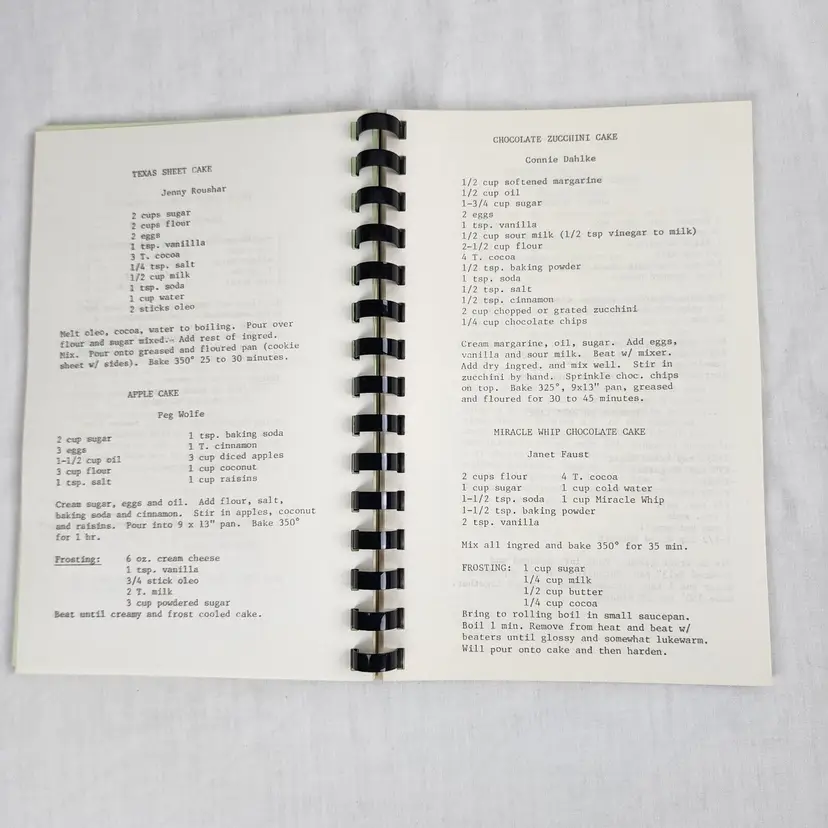 TEXAS SHEET CAKE
Jenny Roushar
2 cups sugar
2 cups flour
2 eggs
1 tsp. vanillla
3 T. cocoa
1/4 tsp. salt
1/2 cup milk
1 tsp. soda
1 cup water
2 sticks oleo
Melt oleo, cocoa, water to boiling. Pour over
flour and sugar mixed.- Add rest of ingred.
Mix. Pour onto greased and floured pan (cookie
sheet w/ sides). Bake 350° 25 to 30 minutes.
APPLE CAKE
Peg Wolfe
2 cup sugar
3 eggs
1-1/2 cup oil
3 cup flour
1 tsp. salt
1 tsp. baking soda
1 T. cinnamon
3 cup diced apples
1 cup coconut
1 cup raisins
Cream sugar, eggs and oil. Add flour, salt,
baking soda and cinnamon. Stir in apples, coconut
and raisins. Pour into 9 x 13" pan. Bake 350°
for 1 hr.
Frosting: 6 oz. cream cheese
1 tsp. vanilla
3/4 stick oleo
2 T. milk
3 cup powdered sugar
Beat until creamy and frost cooled cake.
CHOCOLATE ZUCCHINI CAKE
Connie Dahlke
1/2 cup softened margarine
1/2 cup oil
1-3/4 cup sugar
2 eggs
1 tsp. vanilla
1/2 cup sour milk (1/2 tsp vinegar to milk)
2-1/2 cup flour
4 T. cocoa
1/2 tsp. baking powder
1 tsp. soda
1/2 tsp. salt
1/2 tsp. cinnamon
2 cup chopped or grated zucchini
1/4 cup chocolate chips
Cream margarine, oil, sugar. Add eggs,
vanilla and sour milk. Beat w/ mixer.
Add dry ingred. and mix well. Stir in
zucchini by hand. Sprinkle choc. chips
on top. Bake 325°, 9x13" pan, greased
and floured for 30 to 45 minutes.
MIRACLE WHIP CHOCOLATE CAKE
Janet Faust
2 cups flour 4 T. cocoa
1 cup sugar 1 cup cold water
1-1/2 tsp. soda 1 cup Miracle Whip
1-1/2 tsp. baking powder
2 tsp. vanilla
Mix all ingred and bake 350° for 35 min.
FROSTING: 1 cup sugar
1/4 cup milk
1/2 cup butter
1/4 cup cocoa
Bring to rolling boil in small saucepan.
Boil 1 min. Remove from heat and beat w/
beaters until glossy and somewhat lukewarm.
Will pour onto cake and then harden.